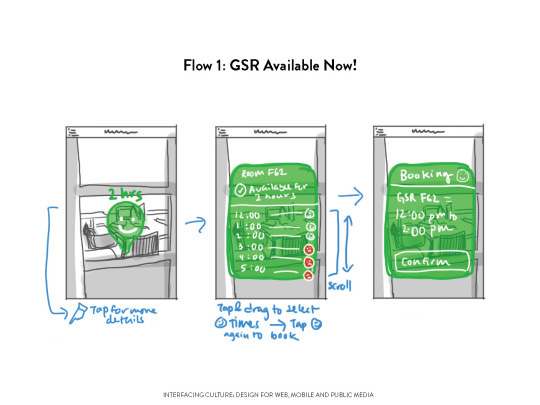 Flow 1: GSR Available Now!
2 hrs
Tap for more
details
Room F62
Available for
2 hours
12:00
1:00
2:00
3:00
4:00
5:00
scroll
Tap & drag to select
Times → Tap
again to book
Booking
GSR F62 –
12:00 pm to
2:00 pm
Confirm
INTERFACING CULTURE: DESIGN FOR WEB, MOBILE AND PUBLIC MEDIA